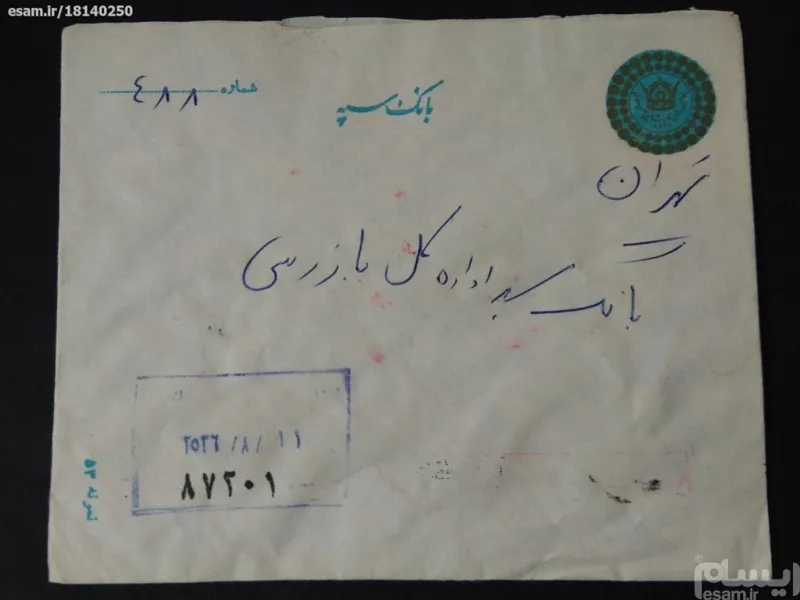 esam.ir/18140250
شماره ۴۸۸
بانک سپه
تهران
بانک سپه اداره کل بازرسی
۲۵۳۶/۸/۱۱
۸۷۲۰۱
نمونه ۵۳
ایسام
esam.ir